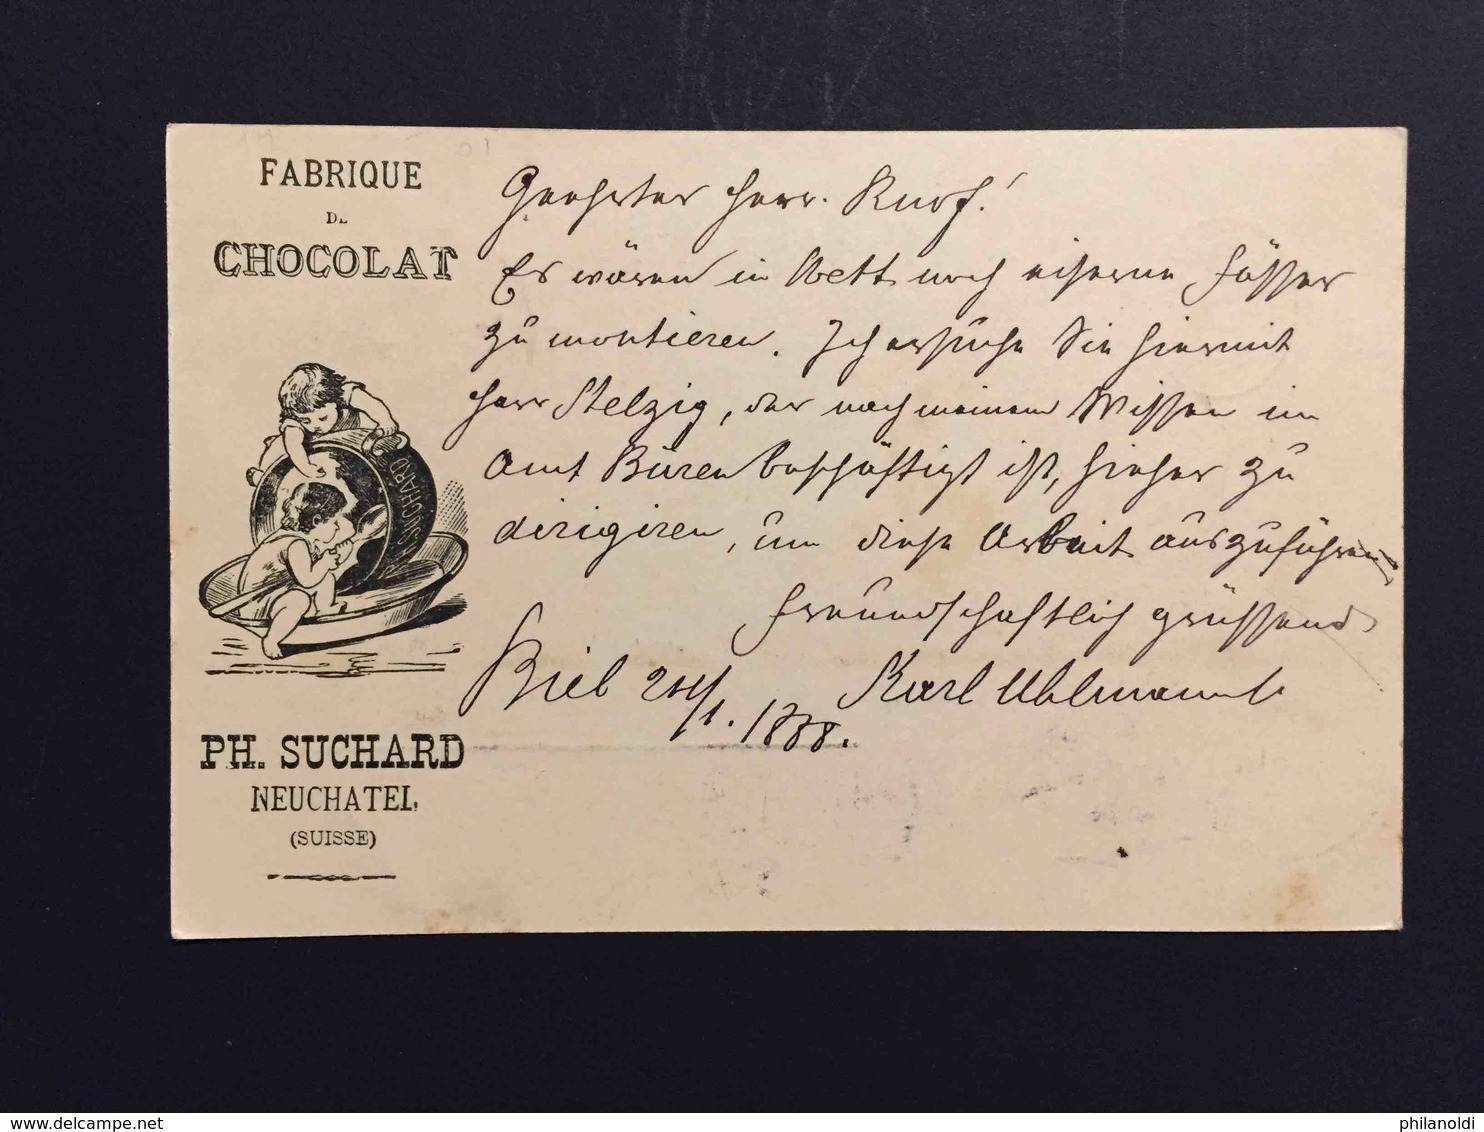 FABRIQUE
DE
CHOCOLAT
SUCHARD
PH. SUCHARD
NEUCHATEL
(SUISSE)
Geehrter Herr
Es wären in noch eiserne Fässer
zu montieren. Ich ersuche Sie hiermit
Herr Stelzig, der nach meinem Wissen im
Amt Büren beschäftigt ist, hieher zu
dirigiren, um diese Arbeit auszuführen
freundschaftlich grüssend
Biel 24/1. 1888. Karl Uhlmann
philanoldi